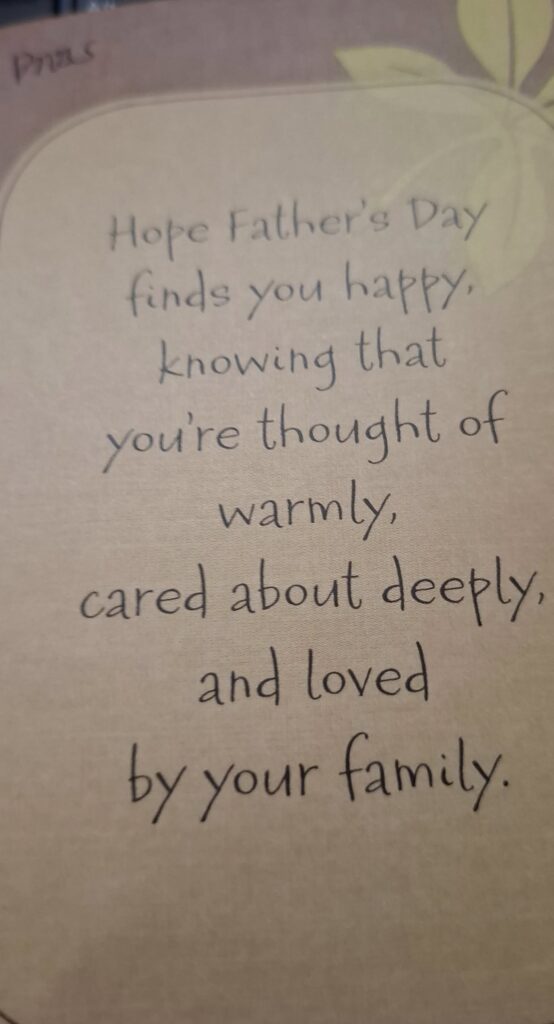 Hope Father's Day
finds you happy,
knowing that
you're thought of
warmly,
cared about deeply,
and loved
by your family.